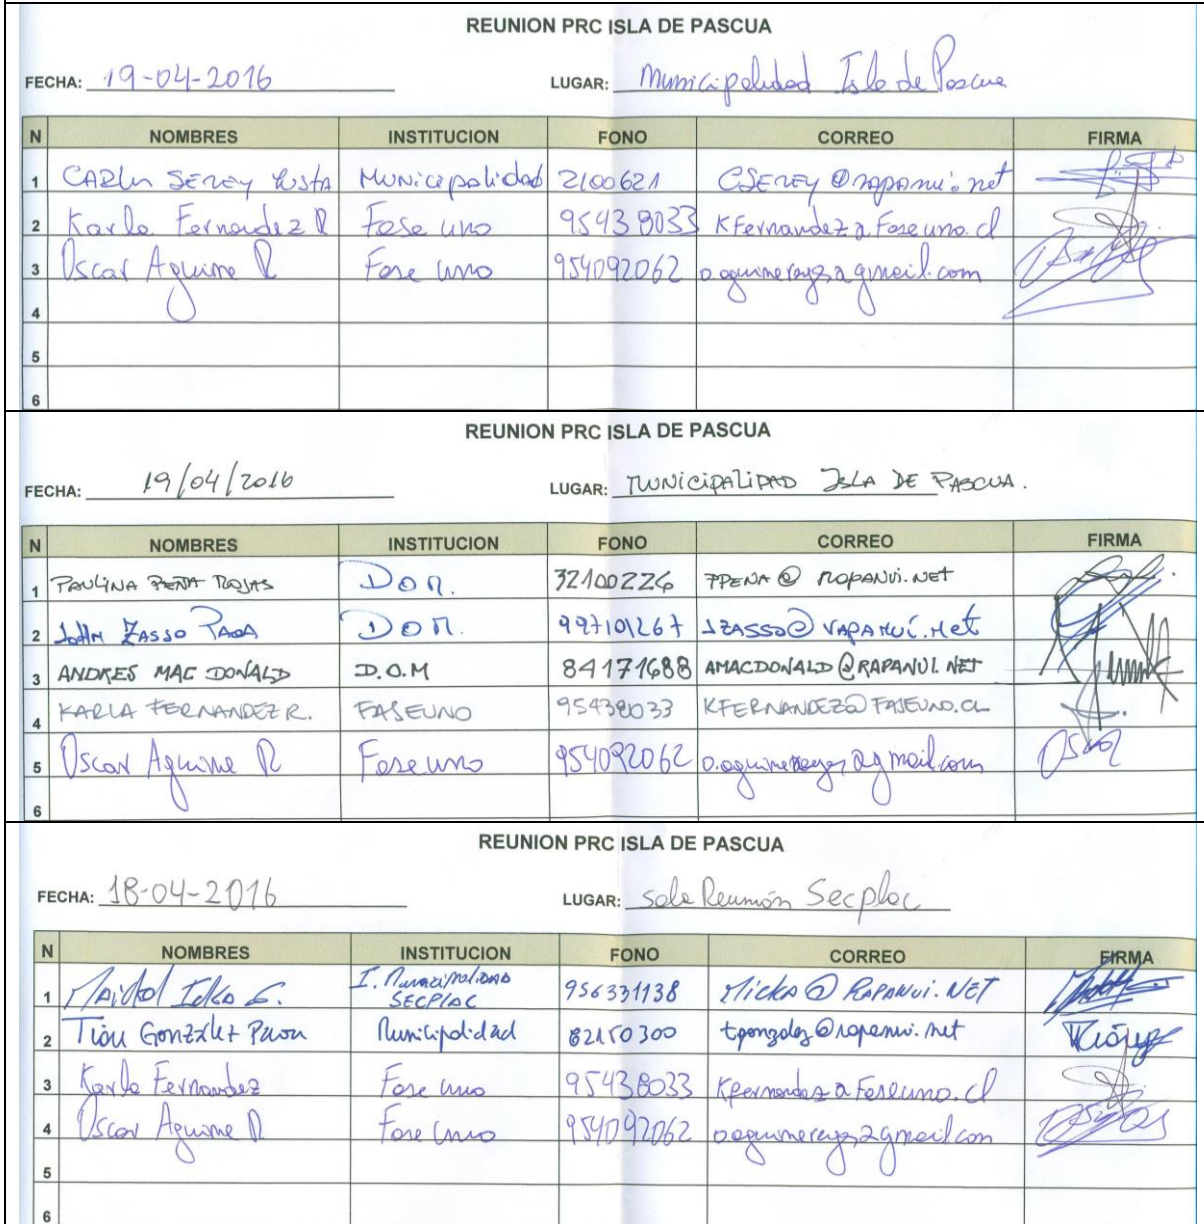 REUNION PRC ISLA DE PASCUA
FECHA: 19-04-2016 LUGAR: Municipalidad Isla de Pascua
N NOMBRES INSTITUCION FONO CORREO FIRMA
1 CARLOS SEREY Municipalidad 2100621 CSEREY@rapanui.net
2 Karla Fernandez R Fase uno 95438033 KFernandez@Faseuno.cl
3 Oscar Aguirre R Fase uno 954092062
4
5
6
REUNION PRC ISLA DE PASCUA
FECHA: 19/04/2016 LUGAR: MUNICIPALIDAD ISLA DE PASCUA.
N NOMBRES INSTITUCION FONO CORREO FIRMA
1 PAULINA PEÑA ROJAS DOM. 32100226 PPENA@RAPANUI.NET
2 ZASSO DOM. 997101267 JZASSO@RAPANUI.Net
3 ANDRES MAC DONALD D.O.M 84171688 AMACDONALD@RAPANUI.NET
4 KARLA FERNANDEZ R. FASEUNO 95438033 KFERNANDEZ@FASEUNO.CL
5 Oscar Aguirre R Faseuno 954092062
6
REUNION PRC ISLA DE PASCUA
FECHA: 18-04-2016 LUGAR: sala Reunión Secplac
N NOMBRES INSTITUCION FONO CORREO FIRMA
1 I. Municipalidad SECPLAC 956331138 Micka@RAPANUI.NET
2 González Municipalidad 82150300 tgonzalez@rapanui.net
3 Karla Fernandez Fase uno 95438033 Kfernandez@Faseuno.cl
4 Oscar Aguirre R Fase Uno 954092062
5
6